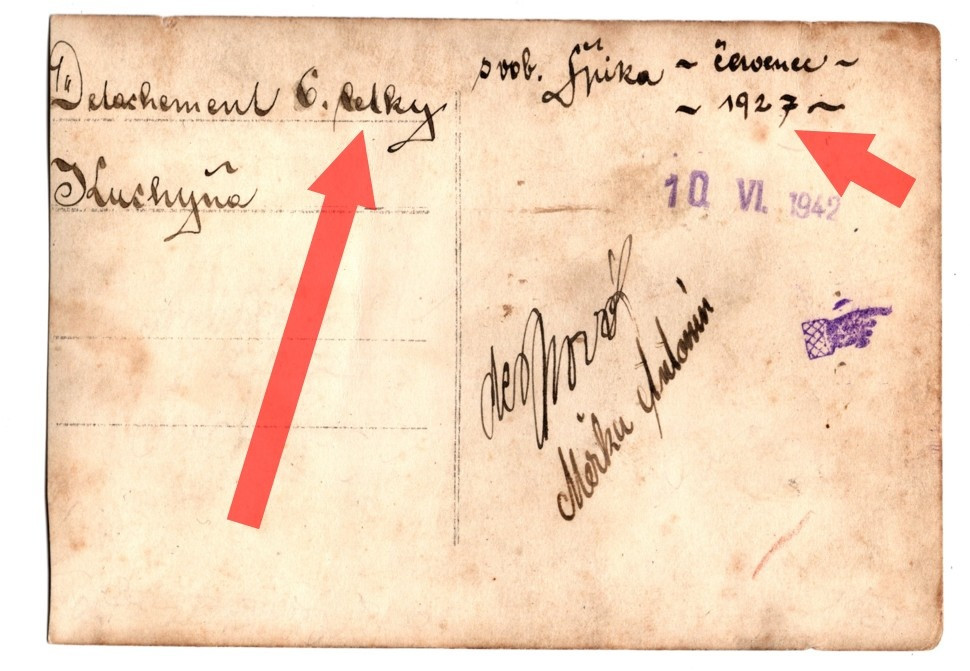 Detachement 6. letky
Kuchyňa
svob. Špika ~ červenec ~
~ 1927 ~
10. VI. 1942
des. Novák
Měrka Antonín